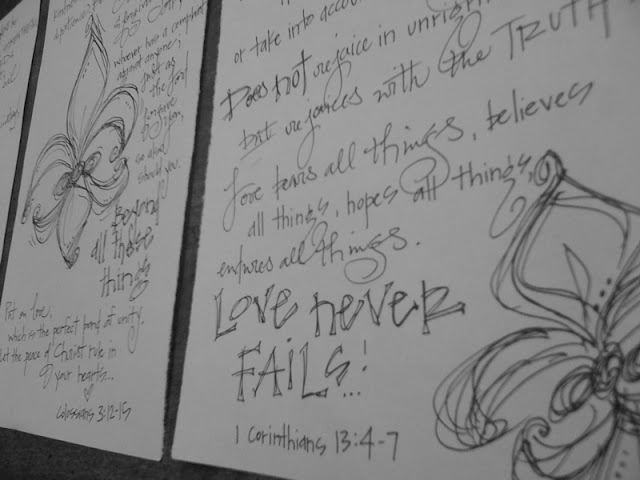 whoever has a complaint
against anyone;
just as
the Lord
forgave
you,
so also
should you.
Beyond
all these
things
Put on love,
which is the perfect bond of unity.
Let the peace of Christ rule in
your hearts...
Colossians 3:12-15
or take into accou
Does not rejoice in unright
but rejoices with the TRUTH
Love bears all things, believes
all things, hopes all things,
endures all things.
Love never
FAiLS...!
1 Corinthians 13:4-7